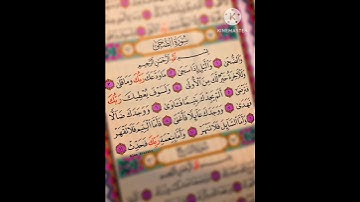 KINEMASTER
سُورَةُ الضُّحَىٰ
بِسْمِ اللَّهِ الرَّحْمَٰنِ الرَّحِيمِ
وَالضُّحَىٰ وَاللَّيْلِ إِذَا سَجَىٰ مَا وَدَّعَكَ رَبُّكَ وَمَا قَلَىٰ
وَلَلْآخِرَةُ خَيْرٌ لَّكَ مِنَ الْأُولَىٰ وَلَسَوْفَ يُعْطِيكَ رَبُّكَ
فَتَرْضَىٰ أَلَمْ يَجِدْكَ يَتِيمًا فَآوَىٰ وَوَجَدَكَ ضَالًّا
فَهَدَىٰ وَوَجَدَكَ عَائِلًا فَأَغْنَىٰ فَأَمَّا الْيَتِيمَ فَلَا تَقْهَرْ
وَأَمَّا السَّائِلَ فَلَا تَنْهَرْ وَأَمَّا بِنِعْمَةِ رَبِّكَ فَحَدِّثْ